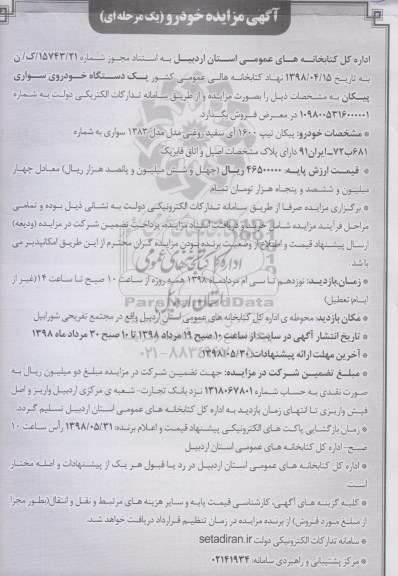 آگهی مزایده خودرو (یک مرحله ای)
اداره کل کتابخانه های عمومی استان اردبیل به استناد مجوز شماره ۱۵۷۴۳/۲۱/ک/ن
به تاریخ ۱۳۹۸/۰۴/۱۵ نهاد کتابخانه هالی عمومی کشور یک دستگاه خودروی سواری
پیکان به مشخصات ذیل را بصورت مزایده و از طریق سامانه تدارکات الکتریکی دولت به شماره
۱۰۹۸۰۰۵۳۱۶۰۰۰۰۰۱ در معرض فروش بگذارد.
* مشخصات خودرو: پیکان تیپ ۱۶۰۰ آی سفید روغنی مدل مدل ۱۳۸۳ سواری به شماره
۶۸۱ب۷۲-ایران۹۱ دارای پلاک مشخصات اصیل و اتاق فابریک
* قیمت ارزش پایه: ۴۶۵۰۰۰۰۰ ریال (چهل و شش میلیون و پانصد هزار ریال) معادل چهار
میلیون و ششصد و پنجاه هزار تومان تمام
* برگزاری مزایده صرفا از طریق سامانه تدارکات الکترونیکی دولت به نشانی ذیل بوده و تمامی
مراحل فرآیند مزایده شامل خرید و دریافت اسناد مزایده، پرداخت تضمین شرکت در مزایده (ودیعه)
ارسال پیشنهاد قیمت و اطلاع از وضعیت برنده بودن مزایده گران محترم از این طریق امکانپذیر می
باشد.
* زمان بازدید: نوزدهم تا سی ام مردادماه ۱۳۹۸ همه روزه از ساعت ۱۰ صبح تا ساعت ۱۴ (غیر از
ایام تعطیل)
* مکان بازدید: محوطه ی اداره کل کتابخانه های عمومی استان اردبیل واقع در مجتمع تفریحی شورابیل
* تاریخ انتشار آگهی در سایت از ساعت ۱۰ صبح ۱۹ مرداد ۱۳۹۸ تا ۱۰ صبح ۳۰ مرداد ماه ۱۳۹۸
* آخرین مهلت ارائه پیشنهادات: ۱۳۹۸/۰۵/۳۰
* مبلغ تضمین شرکت در مزایده: جهت تضمین شرکت در مزایده مبلغ دو میلیون ریال به
صورت نقدی به حساب شماره ۱۳۱۸۰۶۷۸۰۱ نزد بانک تجارت- شعبه ی مرکزی اردبیل واریز و اصل
فیش واریزی تا انتهای زمان بازدید به اداره کل کتابخانه های عمومی استان اردبیل تسلیم گردد.
* زمان بازگشایی پاکت های الکترونیکی پیشنهاد قیمت و اعلام برنده: ۱۳۹۸/۰۵/۳۱ رأس ساعت ۱۰
صبح- اداره کل کتابخانه های عمومی استان اردبیل
* اداره کل کتابخانه های عمومی استان اردبیل در رد یا قبول هر یک از پیشنهادات و اصله مختار
است.
* کلیه گزینه های آگهی، کارشناسی قیمت پایه و سایر هزینه های مرتبط و نقل و انتقال (بطور مجزا
از مبلغ مورد فروش) از برنده مزایده در زمان تنظیم قرارداد دریافت خواهد شد.
* سامانه تدارکات الکترونیکی دولت setadiran.ir
* مرکز پشتیبانی و راهبردی سامانه: ۰۲۱۴۱۹۳۴